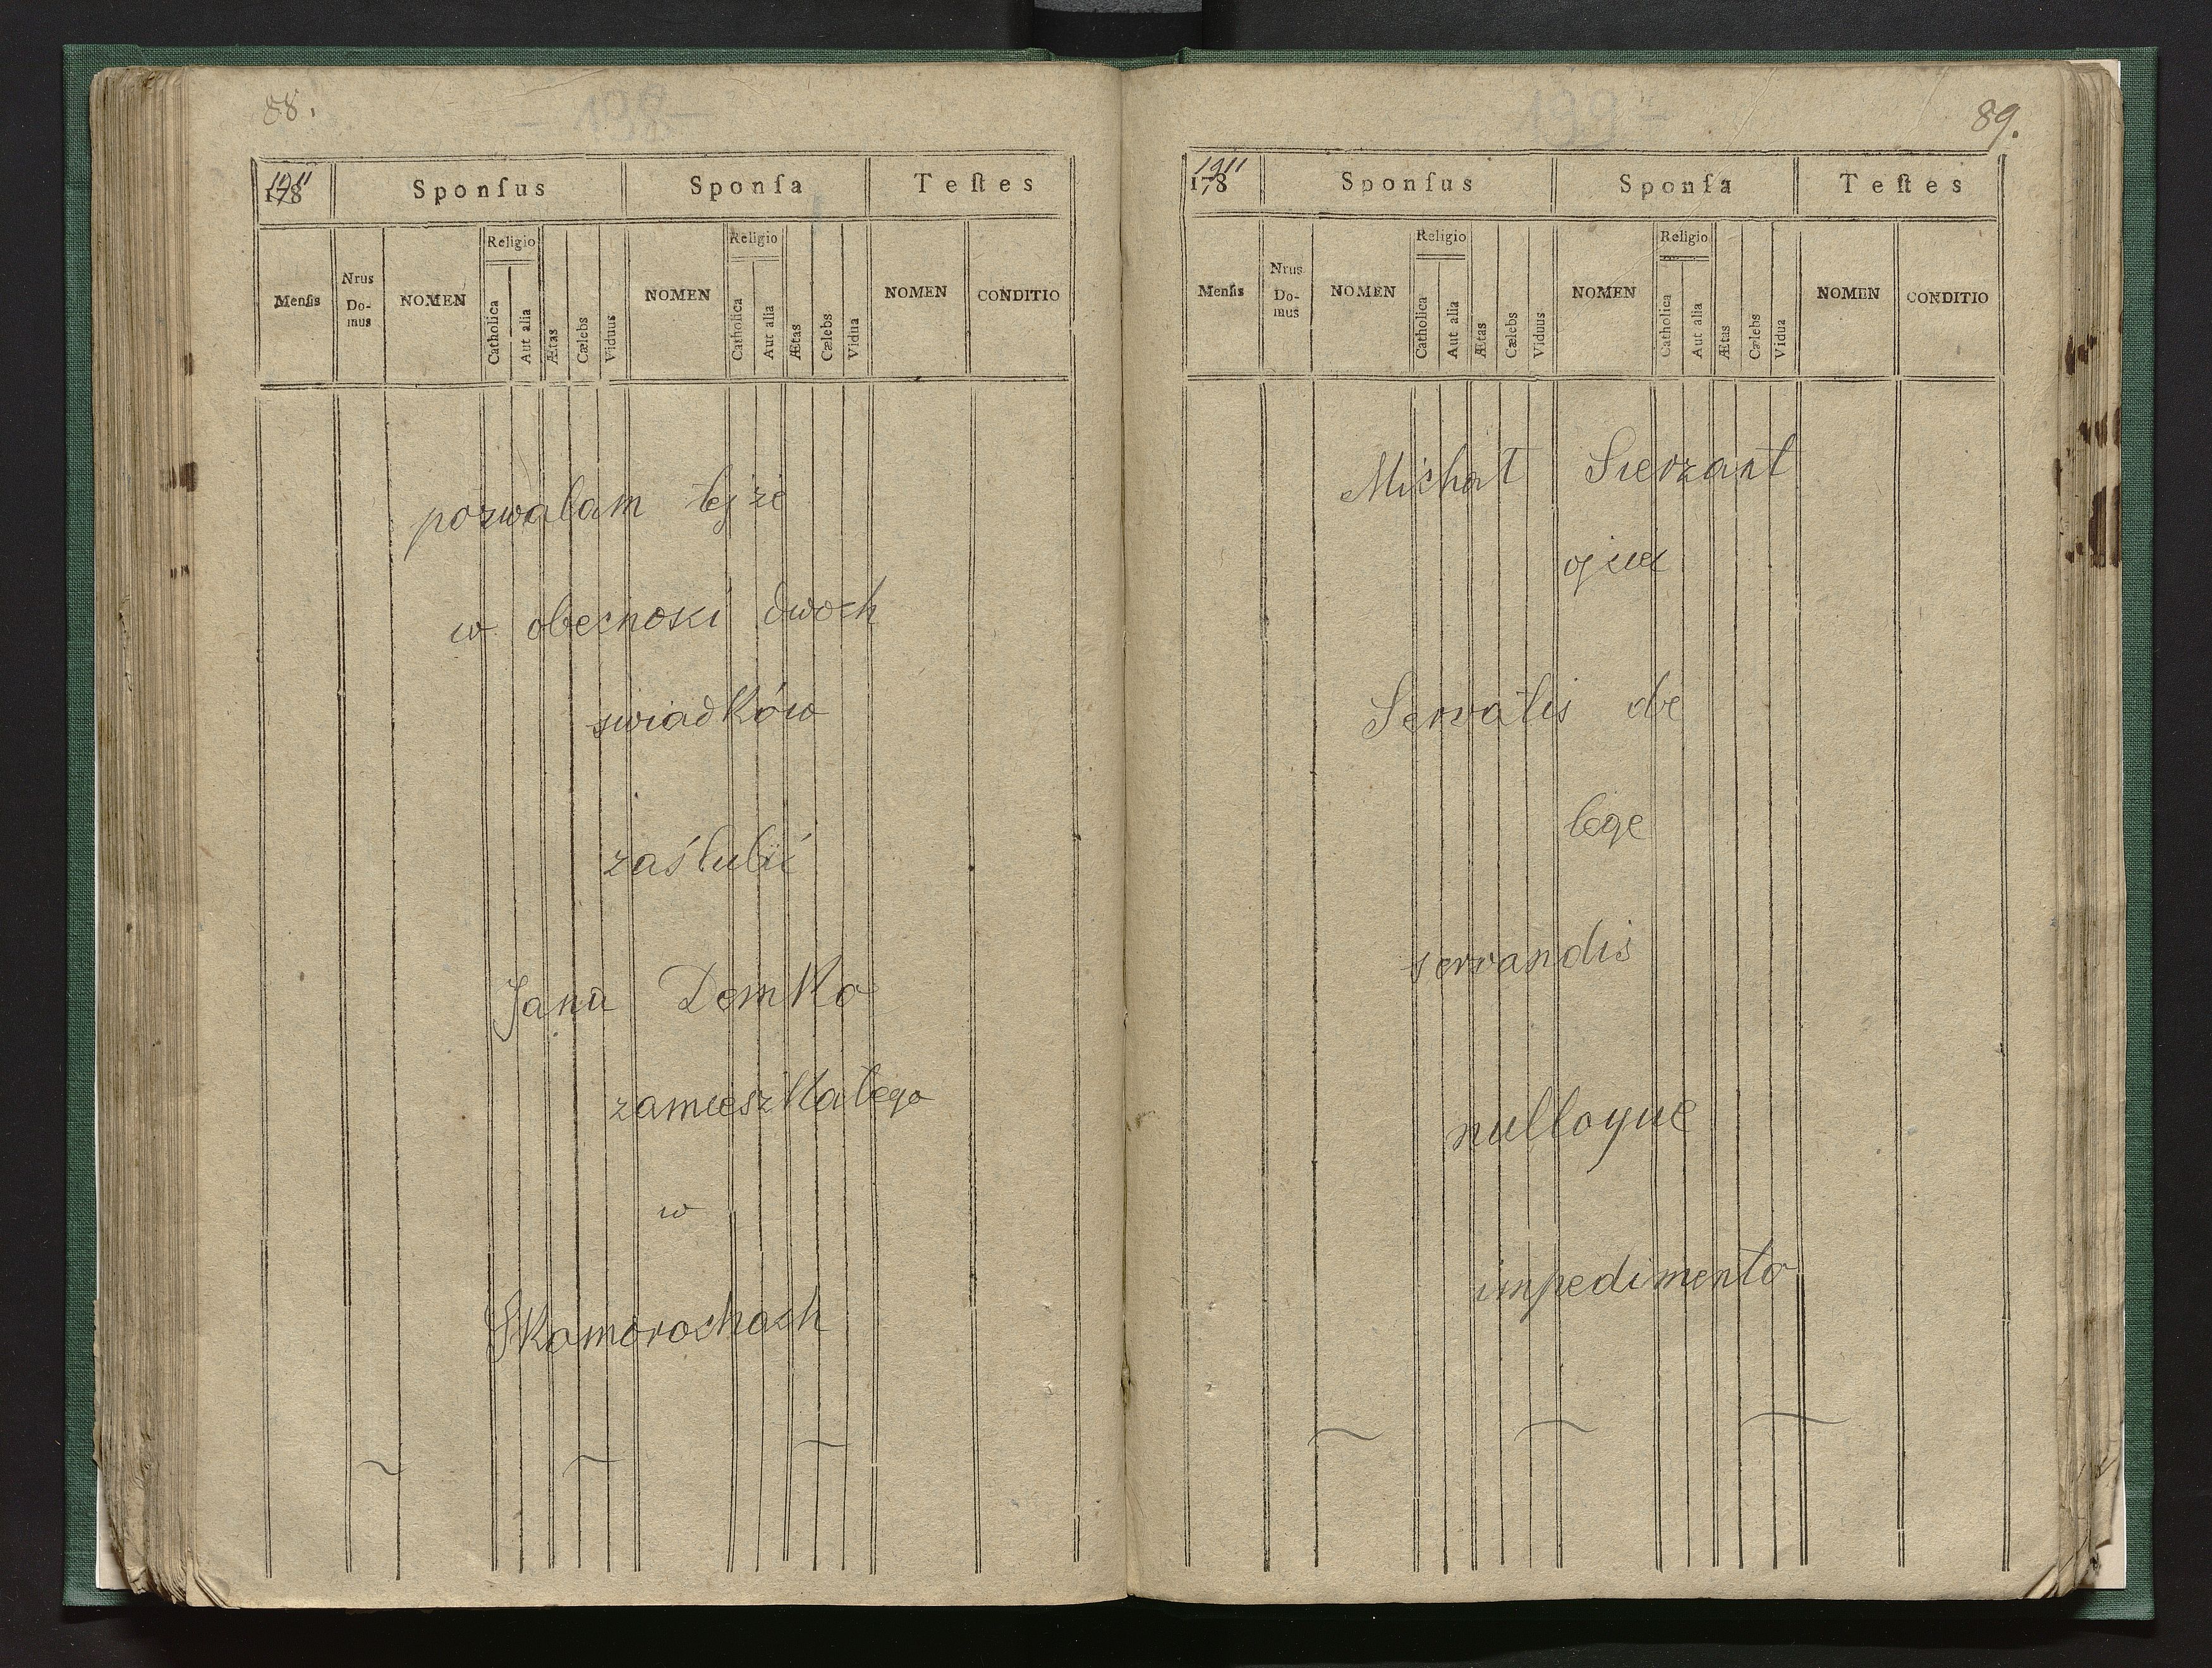 88.
- 198 -
1911
178
Sponſus Sponſa Teſtes
Menſis Nrus Do-mus NOMEN Religio Catholica Aut alia Ætas Cælebs Viduus NOMEN Religio Catholica Aut alia Ætas Cælebs Vidua NOMEN CONDITIO
pozwalam tejże
w obecnosci dwoch
swiadków
zaślubić
Jana Demko
zamieszkałego
w
Skomorochach
89.
- 199 -
1911
178
Sponſus Sponſa Teſtes
Menſis Nrus Do-mus NOMEN Religio Catholica Aut alia Ætas Cælebs Viduus NOMEN Religio Catholica Aut alia Ætas Cælebs Vidua NOMEN CONDITIO
Michał Sierzant
ojciec
Servatis de
lege
servandis
nulloque
impedimento